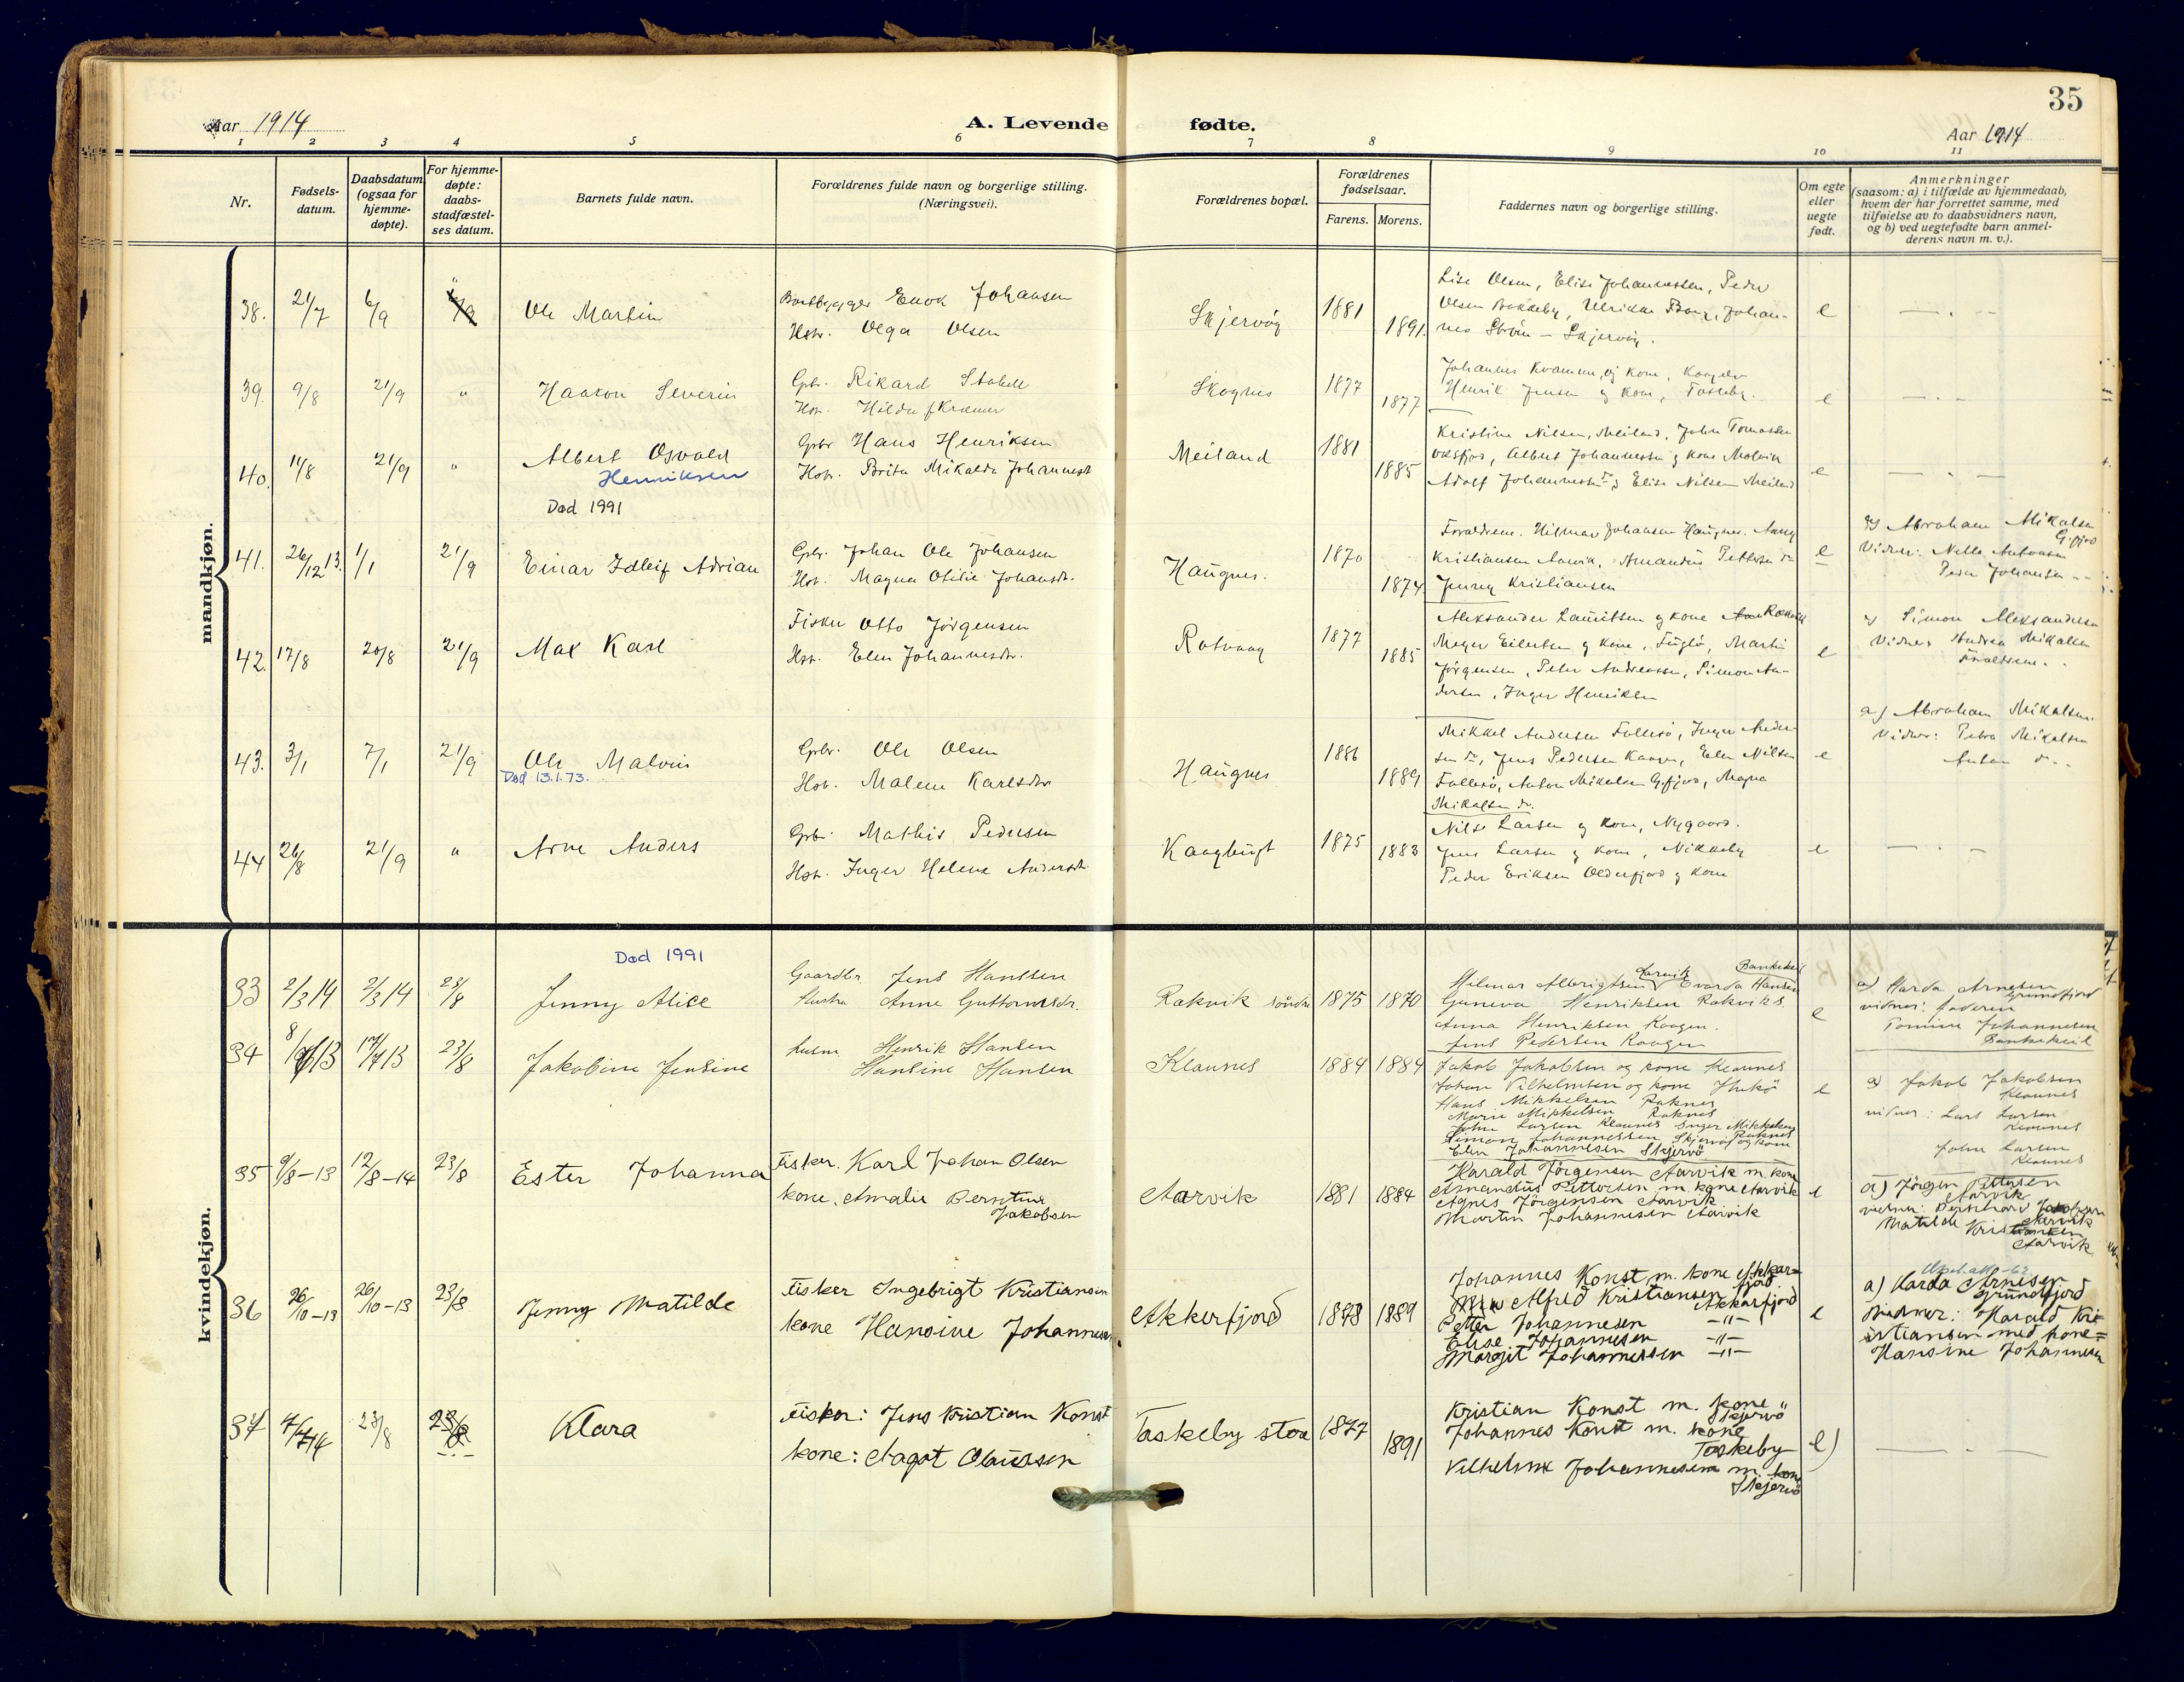 35
Aar 1914
A. Levende fødte.
Aar 1914
1 2 3 4 5 6 7 8 9 10 11
Nr.
Fødsels-
datum.
Daabsdatum
(ogsaa for
hjemme-
døpte).
For hjemme-
døpte:
daabs-
stadfæstel-
ses datum.
Barnets fulde navn.
Forældrenes fulde navn og borgerlige stilling.
(Næringsvei).
Forældrenes bopæl.
Forældrenes
fødselsaar.
Farens. Morens.
Faddernes navn og borgerlige stilling.
Om egte
eller
uegte
født.
Anmerkninger
(saasom: a) i tilfælde av hjemmedaab,
hvem der har forrettet samme, med
tilføielse av to daabsvidners navn,
og b) ved uegtefødte barn anmel-
derens navn m. v.).
mandkjøn.
38. 21/7 6/9 Ole Martin
Enok Johansen
Hstr. Olga Olsen
Skjervöy 1881 1891.
Lise Olsen, Elise Johannessen, Peder
Olsen Bakkeby, Ulrikke, Johan-
nes Ström - Skjervöy.
e
39. 9/8 21/9 " Haakon Severin
Gpbr. Rikard Stabell
Hstr. Hilda f Kræmer
Skognes 1877 1877
Johannes og kone, Kaagen
Henrik Jensen og kone, Taskeby.
e
40. 11/8 21/9 " Albert Osvald
Henriksen
Død 1991
Gpbr Hans Henriksen
Hstr. Brita Mikalda Johannesd
Meiland 1881 1885
Kristine Nilsen, Meiland, John Tomassen
Albert Johannessen og kone Malvik
Adolf Johannessen, Elise Nilsen Meiland
e
41. 26/12 13. 1/1 21/9 Einar Edleif Adrian
Gpbr. Johan Ole Johansen
Hstr. Magna Otilie Johansdr.
Haugnes. 1870 1874.
Forældrene. Hilmar Johansen Haugnes.
Kristiansen Aarvik, Amandus Pettersen do
Jenny Kristiansen
e
a) Abraham Mikalsen
Gifjord
Vidner: Nella Antonsen
Peder Johansen
42. 17/8 20/8 21/9 Max Karl
Fisker Otto Jörgensen
Hstr. Elen Johannesdr.
Rotvaag 1877 1885
Aleksander Lauritsen og kone
Meyer Eilertsen og kone, Fuglö, Martin
Jörgensen, Peter Andreassen, Simon An-
dersen, Inger Henriksen
e
a) Simon Aleksandersen
Vidner Andrea Mikalsen
Forældrene.
43. 3/1 7/1 21/9 Ole Malvin
Død 13.1.73.
Gpbr. Ole Olsen
Hstr. Malene Karlsdtr
Haugnes 1886 1889
Mikkel Andersen Follesö, Inger Ander-
sen do, Jens Pedersen Kaagen, Elen Nilsen
Follesö, Anton Mikalsen Gifjord, Magna
Mikalsen do.
e
a) Abraham Mikalsen.
Vidner: Petra Mikalsen
Anton do.
44 26/8 21/9 " Arne Anders
Gpbr. Mathis Pedersen
Hstr. Inger Helene Andersdr.
Kaagbugt 1875 1883
Nils Larsen og kone, Nygaard.
Jens Larsen og kone, Nikkeby
Peder Eriksen Olderfjord og kone
e
kvindekjøn.
Død 1991
33 2/3 14 2/3 14 23/8 Jenny Alice
Gaardbr Jens Hanssen
Hustru Anne Guttormsdr.
Rakvik söndre 1875 1870
Hilmar Albrigtsen Larvik Evarda Hansen
Geneva Henriksen Rakvik S.
Anna Henriksen Kaagen.
Jens Pedersen Kaagen
e
a) Harda Arnesen
Grundfjord
vidner: faderen
Tomine Johannesen
34 13 17/7 13 23/8 Jakobine Jensine
Henrik Hansen
Hansine Hansen
Klaunes 1884 1884
Jakob Jakobsen og kone Klaunes
Johan Vilhelmsen og kone
Hans Mikkelsen Raknes
Marie Mikkelsen Raknes
John Larsen Klaunes Inger Mikkelsen
Simon Johannessen Skjervö og kone Raknes
Elen Johannesen Skjervö
e
a) Jakob Jakobsen
Klaunes
vidner: Lars Larsen
Klaunes
John Larsen
Klaunes
35 9/8-13 12/8-14 23/8 Ester Johanna
Fisker. Karl Johan Olsen
kone. Amalie Berntine
Jakobsen
Aarvik 1881 1884
Harald Jörgensen Aarvik m. kone
Amandus Pettersen m. kone Aarvik
Agnes Jörgensen Aarvik
Martin Johannesen Aarvik
e
a) Jörgen Pettersen
Aarvik
vidner: Bernhard Jakobsen
Aarvik
Matilde Kristiansen
Aarvik
36 26/10-13 26/10-13 23/8 Jenny Matilde
Fisker Ingebrigt Kristiansen
kone Hansine Johannesen
Akkerfjord 1878 1889
Johannes Konst m. kone Akkar-
fjord
Alfred Kristiansen Akkarfjord
Petter Johannesen -"-
Elise Johannesen -"-
Margit Johannessen -"-
e
a) Harda Arnesen
Grundfjord
Vidner: Harald Kri-
stiansen med kone=
Hansine Johannesen
37 4/4 14 23/8 Klara
Fisker: Jens Kristian Konst
kone: Aagot Olaussen
Taskeby store 1877 1891
Kristian Konst m. kone
Skjervö
Johannes Konst m. kone
Taskeby
Vilhelm Johannesen m. kone
Skjervö
e)